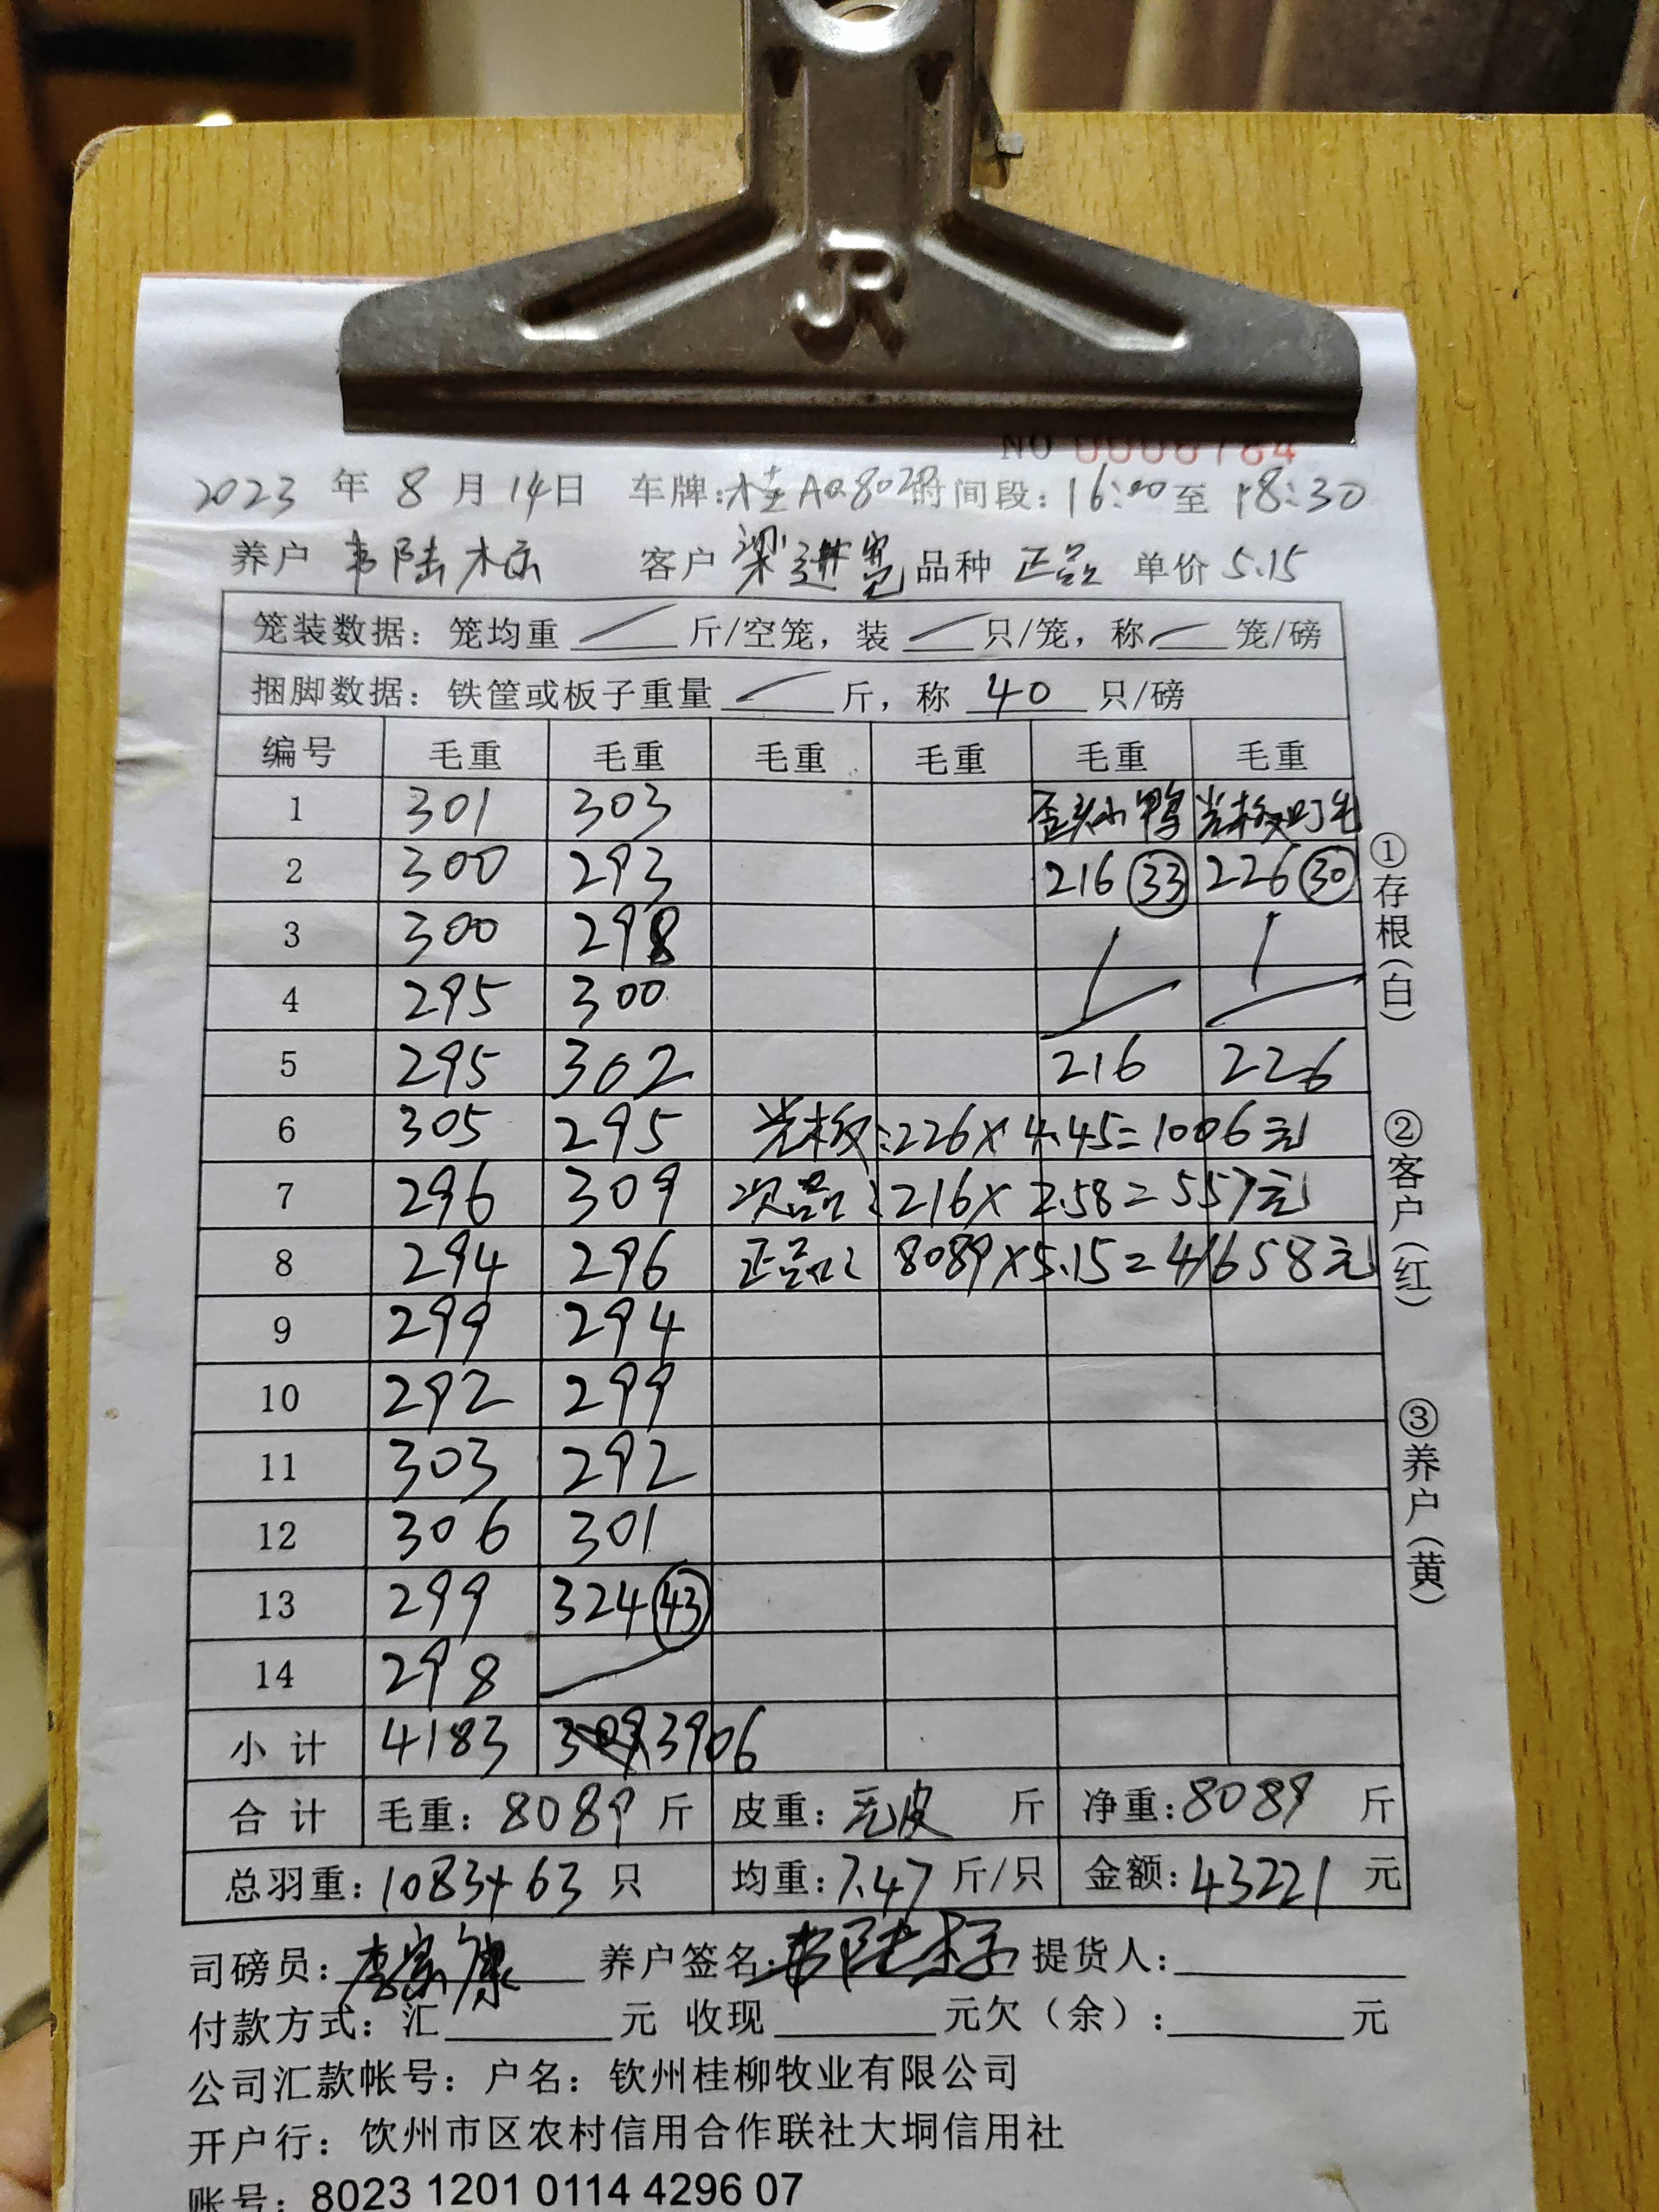 JR
NO 0006784
2023 年 8 月 14日 车牌:桂A08028 时间段: 16:00 至 18:30
养户 韦陆标 客户 梁进宽 品种 正品 单价 5.15
笼装数据: 笼均重 斤/空笼, 装 只/笼, 称 笼/磅
捆脚数据: 铁筐或板子重量 斤, 称 40 只/磅
编号 毛重 毛重 毛重 毛重 毛重 毛重
1 301 303 歪头小鸭 光板叮毛
2 300 293 216 (33) 226 (30)
3 300 298
4 295 300
5 295 302 216 226
6 305 295 光板:226×4.45=1006元
7 296 309 次品:216×2.58=557元
8 294 296 正品: 8089×5.15=41658元
9 299 294
10 292 299
11 303 292
12 306 301
13 299 324 (43)
14 298
小计 4183 3906
合计 毛重: 8089 斤 皮重: 无皮 斤 净重: 8089 斤
总羽重: 1083+63 只 均重: 7.47 斤/只 金额: 43221 元
司磅员: 李家康 养户签名: 韦陆标 提货人:
付款方式: 汇 元 收现 元欠(余): 元
公司汇款帐号: 户名: 钦州桂柳牧业有限公司
开户行: 钦州市区农村信用合作联社大垌信用社
账号: 8023 1201 0114 4296 07
①存根(白)
②客户(红)
③养户(黄)